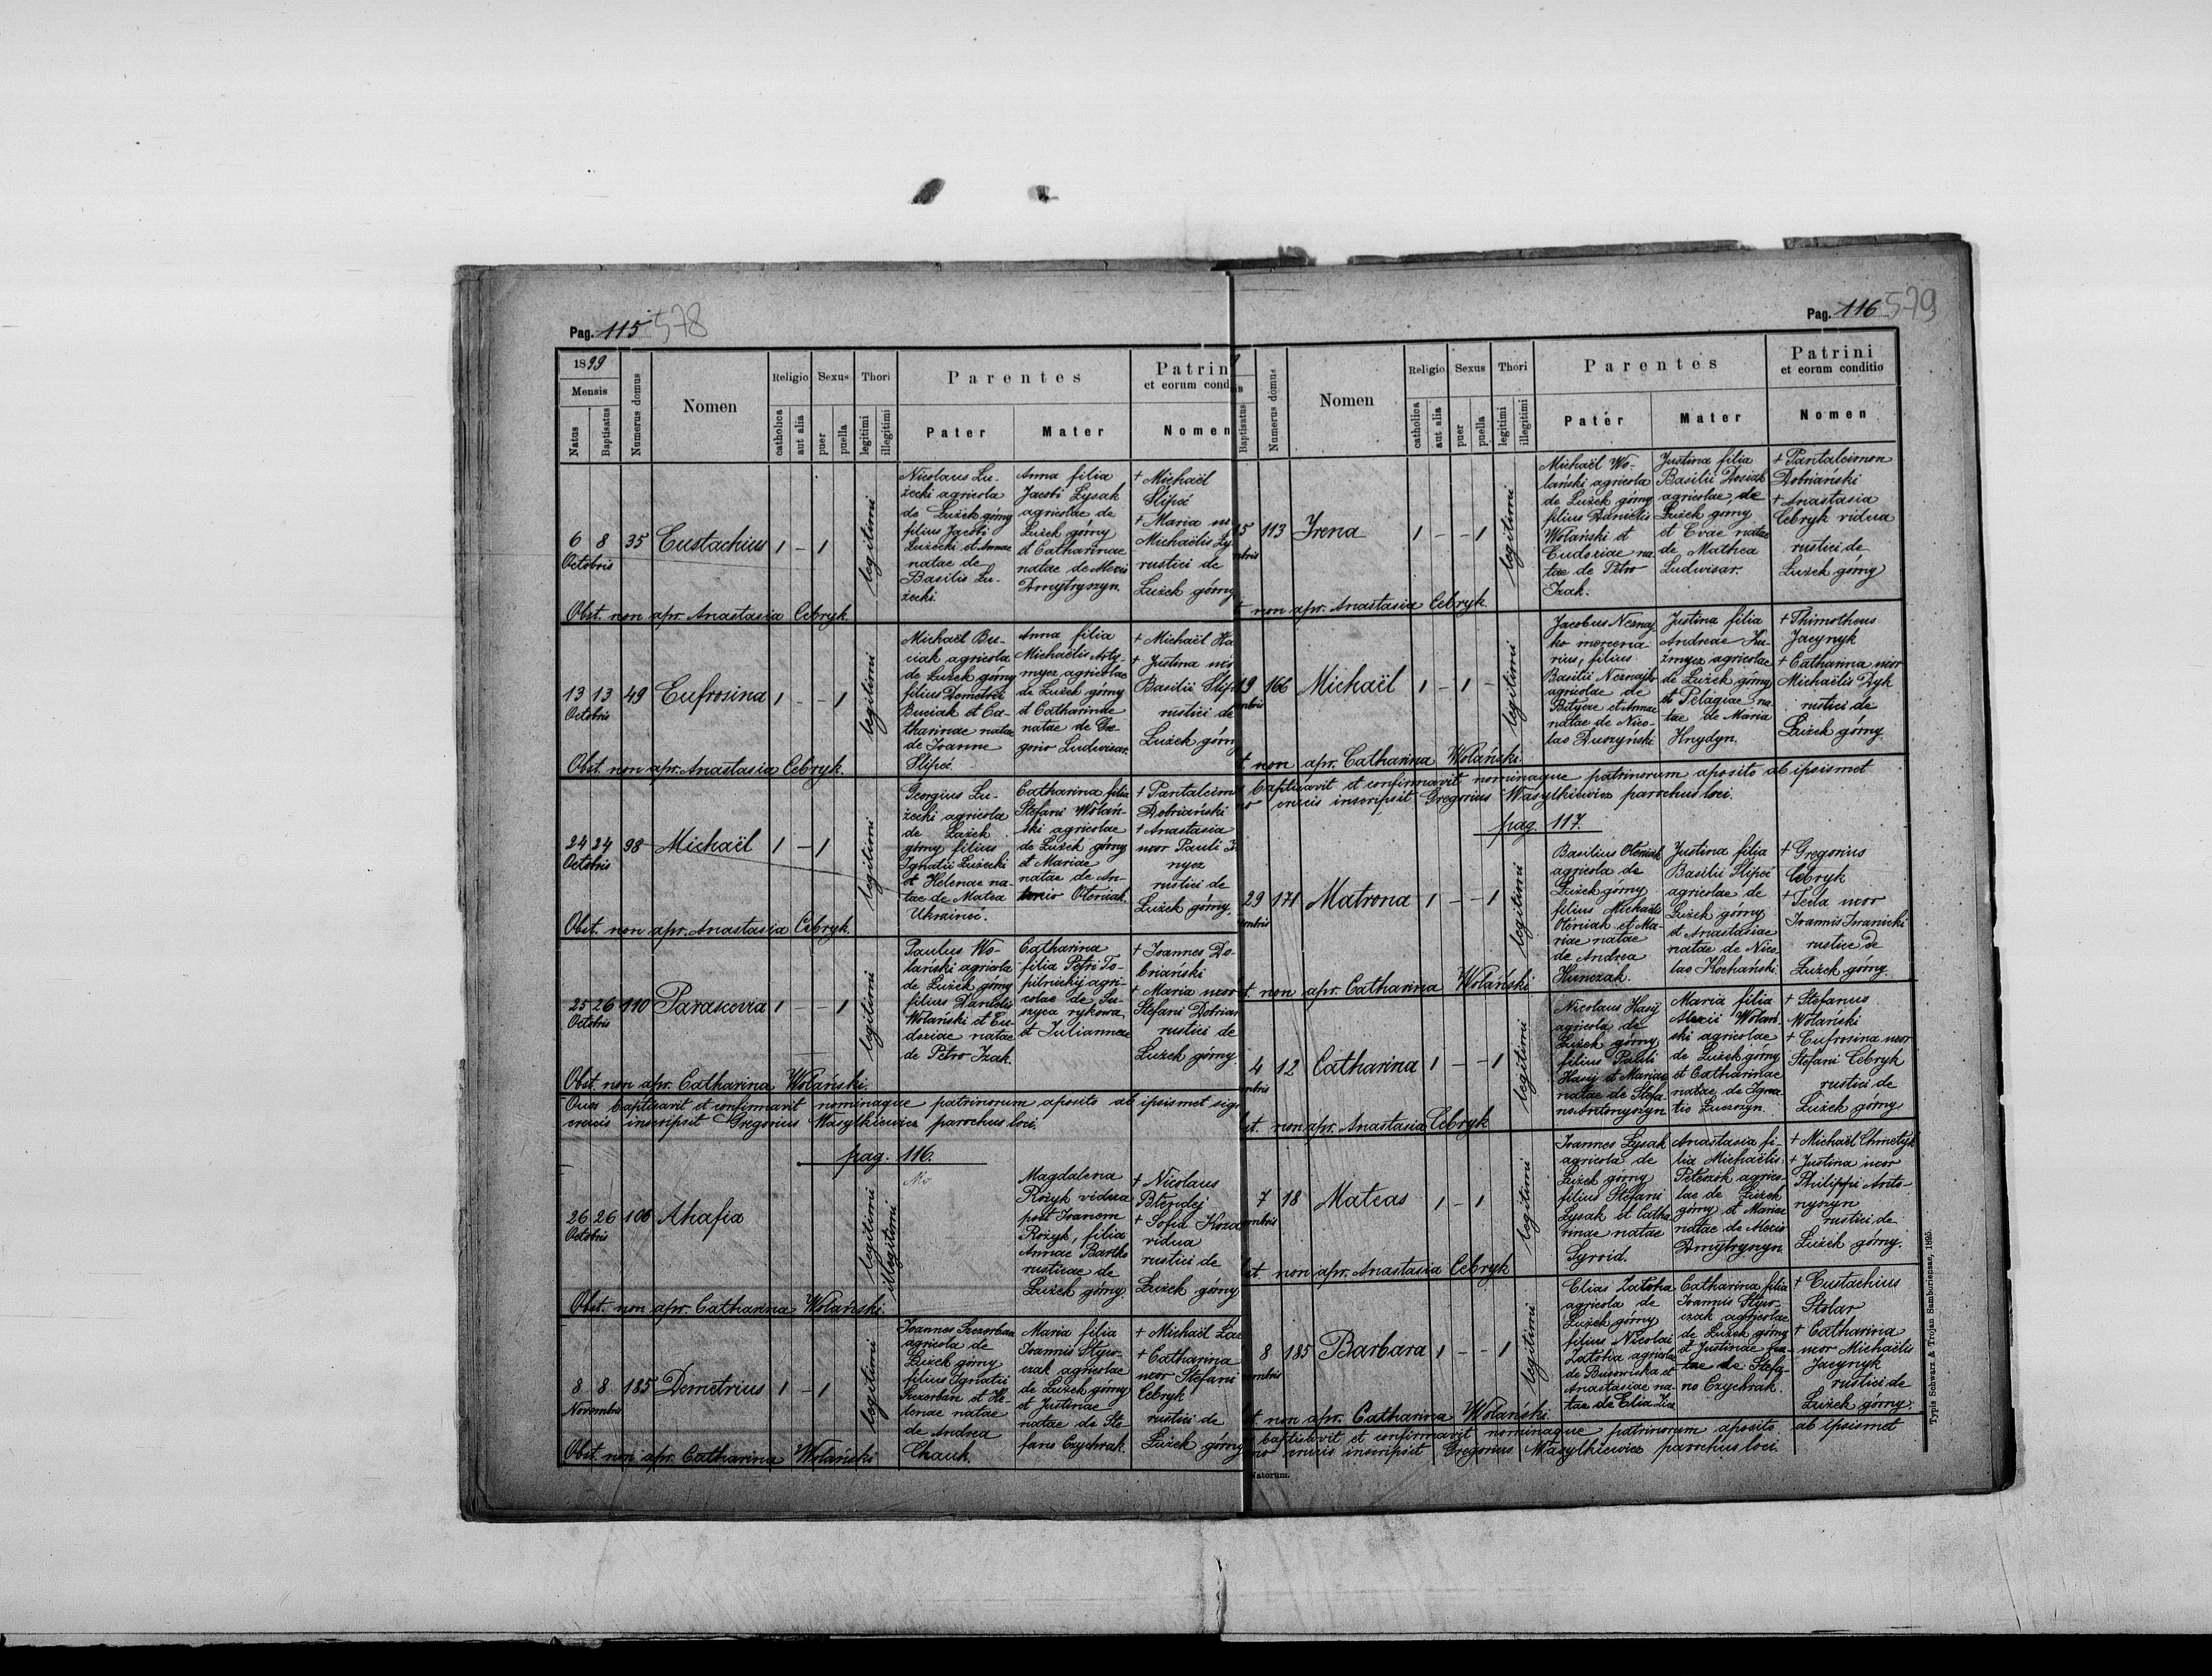 Pag. 115 578
1899
Mensis
Natus
Baptisatus
Numerus domus
Nomen
Religio
catholica
aut alia
Sexus
puer
puella
Thori
legitimi
illegitimi
Parentes
Pater
Mater
Patrin
et eorum cond
Nomen
6 8 35 Eustachius 1 - 1
Octobris
legitimi
Nicolaus Lu-
żecki agricola
de Łużek górny
filius Jacobi
Łużecki et Annae
natae de
Basilio Lu-
żecki.
Anna filia
Jacobi Lysak
agricolae de
Łużek górny
et Catharinae
natae de Alexio
Dmytryszyn.
+ Michaël
Slipeć
+ Maria
Michaëlis Ly
rustici de
Łużek górny
Obst. non apr. Anastasia Cebryk.
13 13 49 Eufrosina 1 - - 1
Octobris
legitimi
Michaël Bu-
ciak agricola
de Łużek górny
filius Demetrii
Buciak et Ca-
tharinae natae
de Joanne
Slipeć.
Anna filia
Michaëlis Arty-
mycz agricolae
de Łużek górny
et Catharinae
natae de Gre-
gorio Ludwisar.
+ Michaël Ha
+ Justina
Basilii Slip
rustici de
Łużek górn
Obst. non apr. Anastasia Cebryk.
24 24 98 Michaël 1 - 1
Octobris
legitimi
Georgius Lu-
żecki agricola
de Łużek
górny filius
Ignatii Łużecki
et Helenae na-
tae de Matea
Ukraineć.
Catharina filia
Stefani Wolań-
ski agricolae
de Łużek górny
et Mariae
natae de An-
tonio Oteniak.
+ Pantaleim
Dobriański
+ Anastasia
uxor Pauli
nycz
rustici de
Łużek górny.
Obst. non apr. Anastasia Cebryk.
25 26 110 Parascevia 1 - - 1
Octobris
legitimi
Paulus Wo-
lański agricola
de Łużek górny
filius Danielis
Wolański et Eu-
doxiae natae
de Petro Izak.
Catharina
filia Petri To-
pilnickÿ agri-
colae de Su-
szyca rykowa
et Juliannae
+ Joannes Do-
briański
+ Maria uxor
Stefani Dobrian
rustici de
Łużek górny
Obst. non apr. Catharina Wolański.
Quos baptisavit et confirmavit nominaque patrinorum aposito ab ipsismet sig
crucis inscripsit Gregorius Wasylkiewicz parochus loci.
pag. 116.
26 26 106 Ahafia
Octobris
legitimi
illegitimi
Magdalena
Rożyk vidua
post Joanem
Rożyk, filia
Annae Bartko
rusticae de
Łużek górny
+ Nicolaus
+ Sofia Koza
vidua
rustici de
Łużek górny
Obst. non apr. Catharina Wolański.
8 8 185 Demetrius 1 - 1
Novembris
legitimi
Joannes Szczerban
agricola de
Łużek górny
filius Ignatii
Szczerban et He-
lenae natae
de Andrea
Chauk.
Maria filia
Joannis Styw-
czak agricolae
de Łużek górny
et Justinae
natae de Ste-
fano Czychrak.
+ Michaël Za
+ Catharina
uxor Stefani
Cebryk
rustici de
Łużek górny
Obst. non apr. Catharina Wolański
Pag. 116 579
Baptisatus
Numerus domus
Nomen
Religio
catholica
aut alia
Sexus
puer
puella
Thori
legitimi
illegitimi
Parentes
Pater
Mater
Patrini
et eorum conditio
Nomen
15 113 Irena 1 - - 1
mbris
legitimi
Michaël Wo-
lański agricola
de Łużek górny
filius Danielis
Wolański et
Eudoxiae na-
tae de Petro
Izak.
Justina filia
Basilii Dosiak
agricolae, de
Łużek górny
et Evae natae
de Mathea
Ludwisar.
+ Pantaleimon
Dobriański
+ Anastasia
Cebryk vidua
rustici de
Łużek górny
t non apr. Anastasia Cebryk.
19 166 Michaël 1 - 1 -
mbris
legitimi
Jacobus Neznaj-
ko mercena-
rius, filius
Basilii Neznajko
agricolae de
et Annae
natae de Nico-
lao Duszyński
Justina filia
Andreae Ku-
źmycz agricolae
de Łużek górny
et Pelagiae na-
tae de Maria
Hnydyn.
+ Thimotheus
Jacynyk
+ Catharina uxor
Michaëlis Dyk
rustici de
Łużek górny.
t non apr. Catharina Wolański.
baptisavit et confirmavit nominaque patrinorum aposito ab ipsismet
no crucis inscripsit Gregorius Wasylkiewicz parochus loci.
pag. 117.
29 171 Matrona 1 - - 1
mbris
legitimi
Basilius Oteniak
agricola de
Łużek górny
filius Michaëlis
Oteniak et Ma-
riae natae
de Andrea
Hunczak.
Justina filia
Basilii Slipeć
agricolae de
Łużek górny
et Anastasiae
natae de Nico-
lao Kochański.
+ Gregorius
Cebryk
+ Tecla uxor
Joannis Iwanicki
rustici de
Łużek górny.
t. non apr. Catharina Wolański
4 12 Catharina 1 - - 1
mbris
legitimi
Nicolaus Hasÿ
agricola de
Łużek górny
filius Pauli
Hasÿ et Mariae
natae de Stefa-
no Antonyszyn
Maria filia
Alexii Wolań-
ski agricolae
de Łużek górny
et Catharinae
natae de Igna-
tio Łuczszyn.
+ Stefanus
Wolański
+ Eufrosina uxor
Stefani Cebryk
rustici de
Łużek górny
st. non apr. Anastasia Cebryk
7 18 Mateas 1 - 1
mbris
legitimi
Joannes Lysak
agricola de
Łużek górny
filius Stefani
Lysak et Catha-
rinae natae
Syroid.
Anastasia fi-
lia Michaëlis
Petészik agrico-
lae de Łużek
górny et Mariae
natae de Alexio
Dmytryszyn
+ Michaël Chmetyk
+ Justina uxor
Philippi Anto-
nyszyn
rustici de
Łużek górny.
st. non apr. Anastasia Cebryk
8 185 Barbara 1 - - 1
mbris
legitimi
Elias Zatoha
agricola de
Łużek górny
filius Nicolai
Zatoha agricolae
de Busowiska et
Anastasiae na-
tae de Elia
Catharina filia
Joannis Styw-
czak agricolae
de Łużek górny
et Justinae na-
tae de Stefa-
no Czychrak.
+ Eustachius
Stolar
+ Catharina
uxor Michaëlis
Jacynyk
rustici de
Łużek górny.
st. non apr. Catharina Wolański.
baptisavit et confirmavit nominaque patrinorum aposito ab ipsismet
no crucis inscripsit Gregorius Wasylkiewicz parochus loci.
Natorum.
Typis Schwarz & Trojan Samboriensae, 1895.